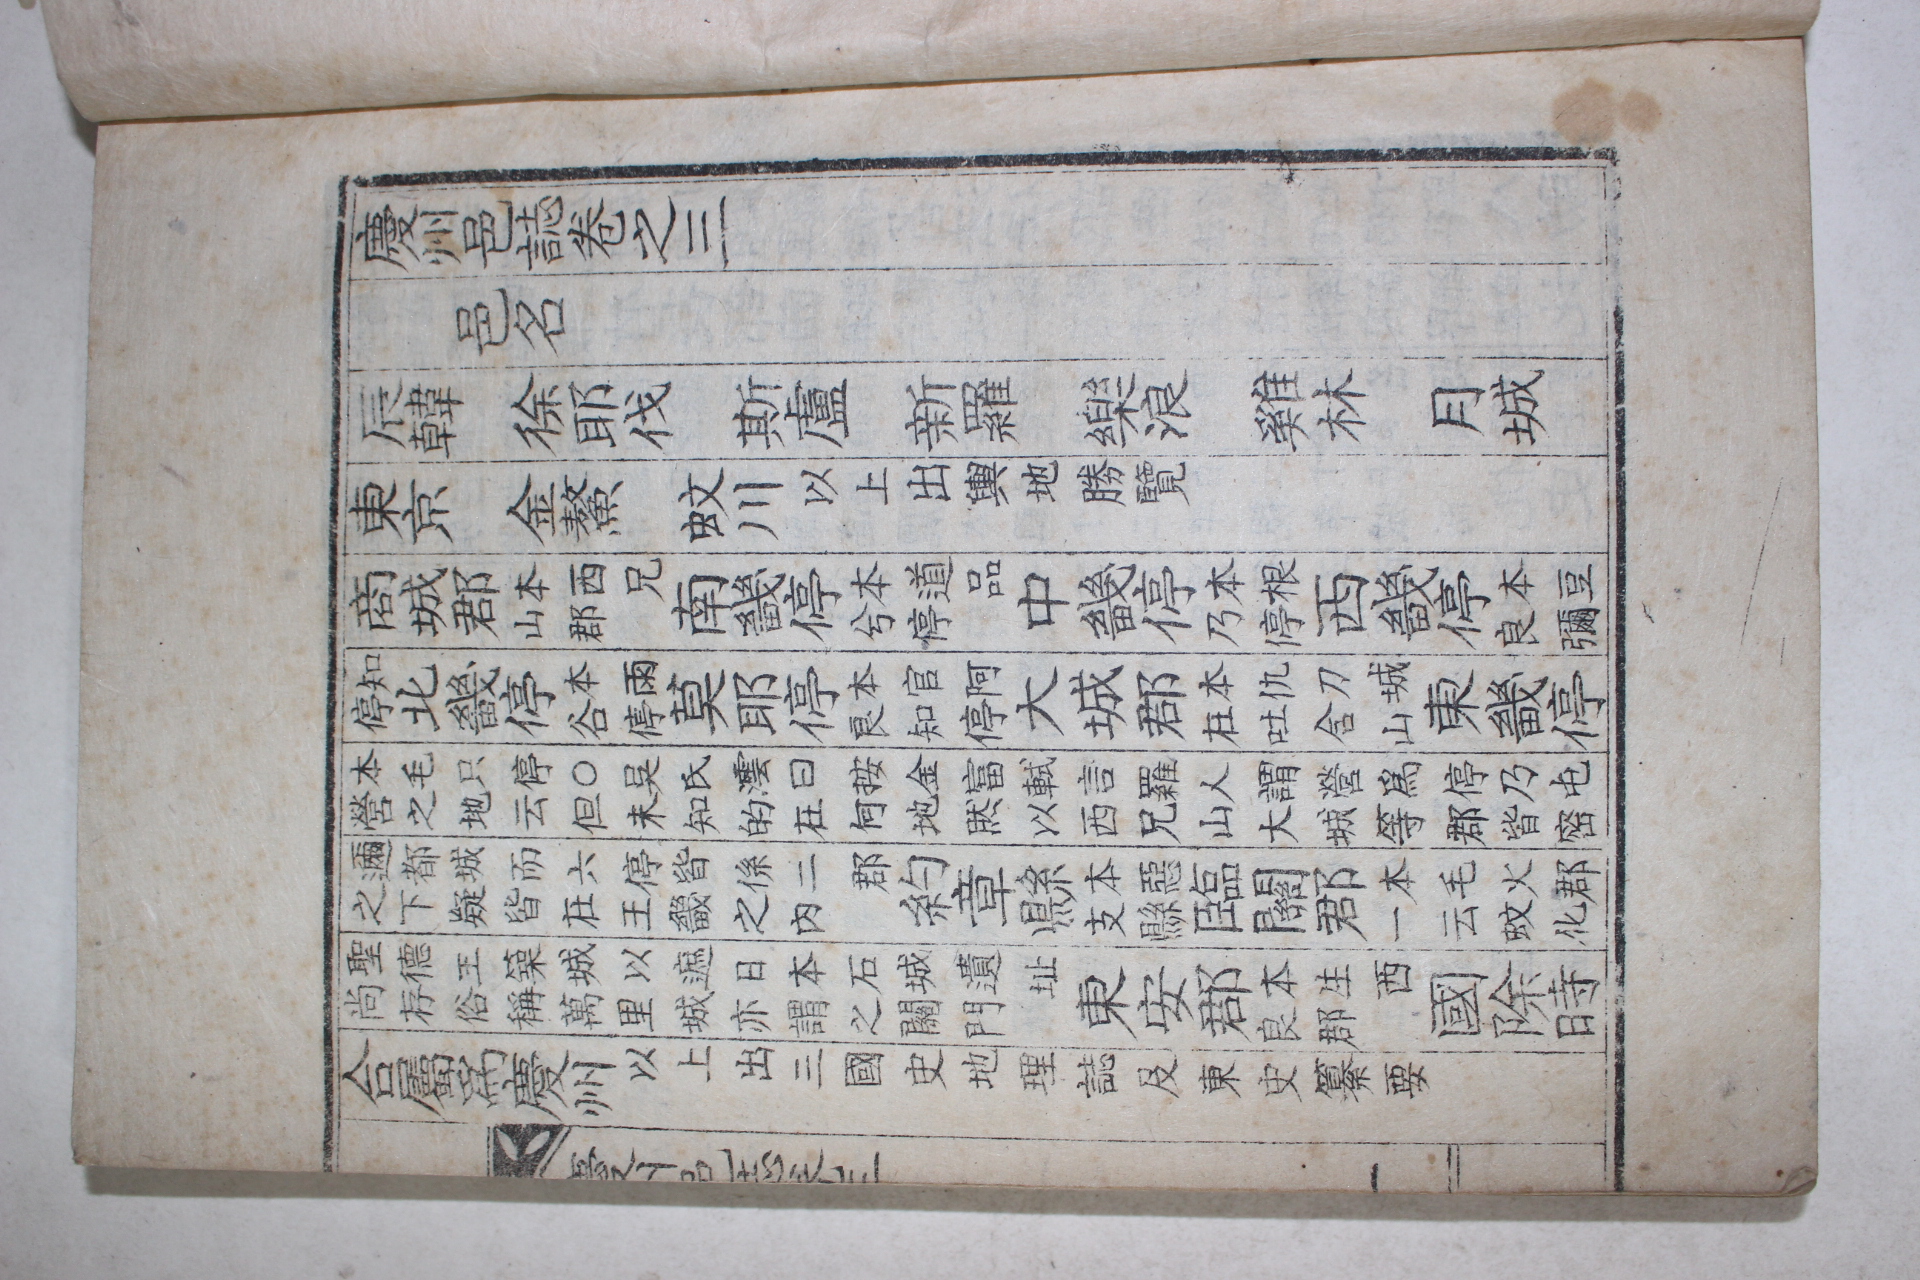 慶州邑誌卷之三
邑名
辰韓 徐耶伐 斯盧 新羅 樂浪 雞林 月城
東京 金鰲 蚊川以上出輿地勝覽
商城郡本西兄山郡南畿停本道品兮停中畿停本根乃停西畿停本豆良彌
知停北畿停本雨谷停莫耶停本官阿良知停大城郡本仇刀城在吐含山東畿停
本毛只停○吳氏澐曰按金富軾言羅人謂營爲停乃屯
營之地云但未知的在何地然以西兄山大城等郡皆密
邇都城而六停皆係二郡
之下疑皆在王畿之內約章縣本惡支縣臨關郡本毛火郡一云蚊化
聖德王築城以遮日本石城遺址
尚存俗稱萬里城亦謂之關門東安郡本生西良郡國除時
合屬爲慶州以上出三國史地理誌及東史纂要
慶州邑誌卷之三 一